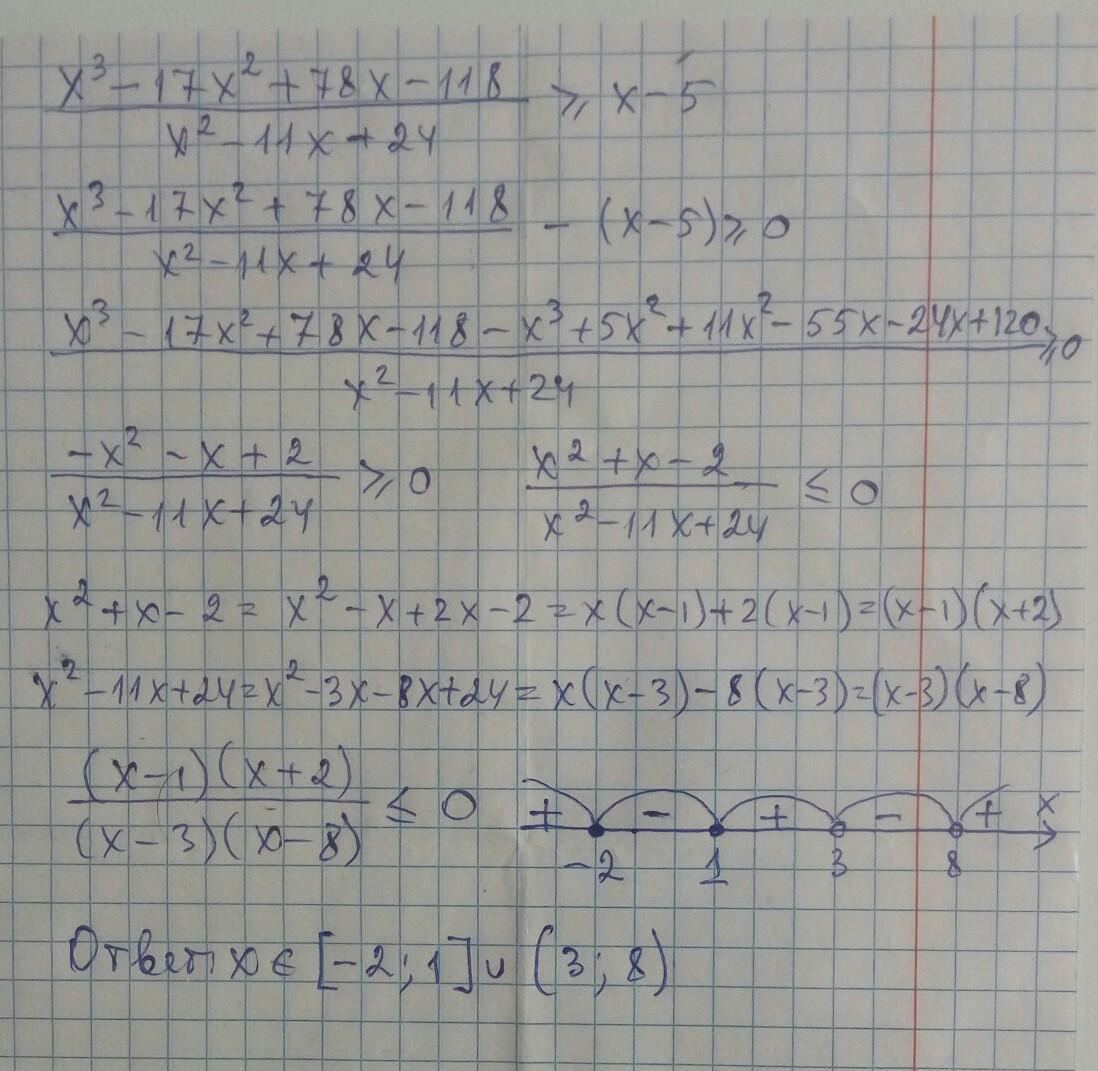 x³ - 17x² + 78x - 118 / x² - 11x + 24 ⩾ x - 5
x³ - 17x² + 78x - 118 / x² - 11x + 24 - (x - 5) ⩾ 0
x³ - 17x² + 78x - 118 - x³ + 5x² + 11x² - 55x - 24x + 120 / x² - 11x + 24 ⩾ 0
-x² - x + 2 / x² - 11x + 24 ⩾ 0 x² + x - 2 / x² - 11x + 24 ≤ 0
x² + x - 2 = x² - x + 2x - 2 = x(x-1) + 2(x-1) = (x-1)(x+2)
x² - 11x + 24 = x² - 3x - 8x + 24 = x(x-3) - 8(x-3) = (x-3)(x-8)
(x-1)(x+2) / (x-3)(x-8) ≤ 0
+ - + - + x
-2 1 3 8
Ответ: x ∈ [-2; 1] ∪ (3; 8)